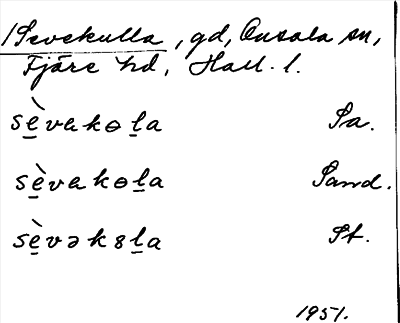 /Sevekulla, gd, Onsala sn,
Fjäre hd, Hall. l.
sè̱vakɵḻa Sa.
sè̱vakɵḻa Sand.
sè̱vəkɞḻa St.
1951.